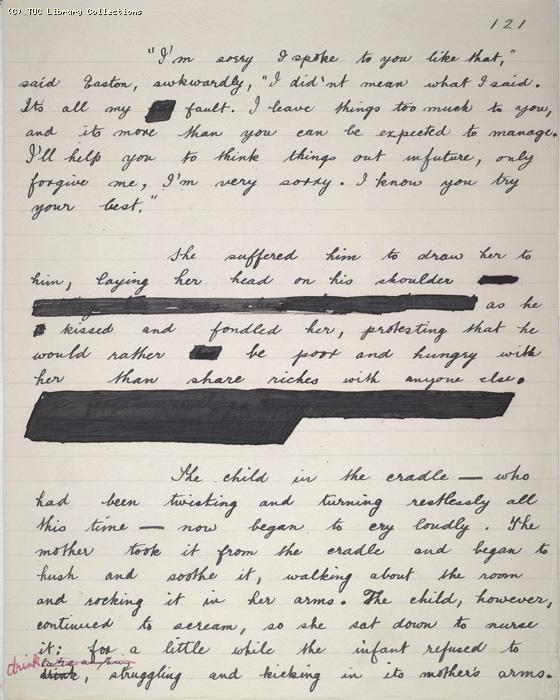 (C) TUC Library Collections
121
"I'm sorry I spoke to you like that,"
said Easton, awkwardly, "I did'nt mean what I said.
Its all my fault. I leave things too much to you,
and its more than you can be expected to manage.
I'll help you to think things out infuture, only
forgive me, I'm very sorry. I know you try
your best."
She suffered him to draw her to
him, laying her head on his shoulder
as he
kissed and fondled her, protesting that he
would rather be poor and hungry with
her than share riches with anyone else.
The child in the cradle — who
had been twisting and turning restlessly all
this time — now began to cry loudly. The
mother took it from the cradle and began to
hush and soothe it, walking about the room
and rocking it in her arms. The child, however,
continued to scream, so she sat down to nurse
it; for a little while the infant refused to
take anything
drink drink, struggling and kicking in its mother's arms.